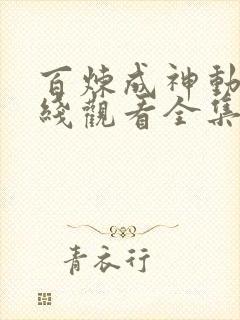 百炼成神動
綫觀看全集
青衣行